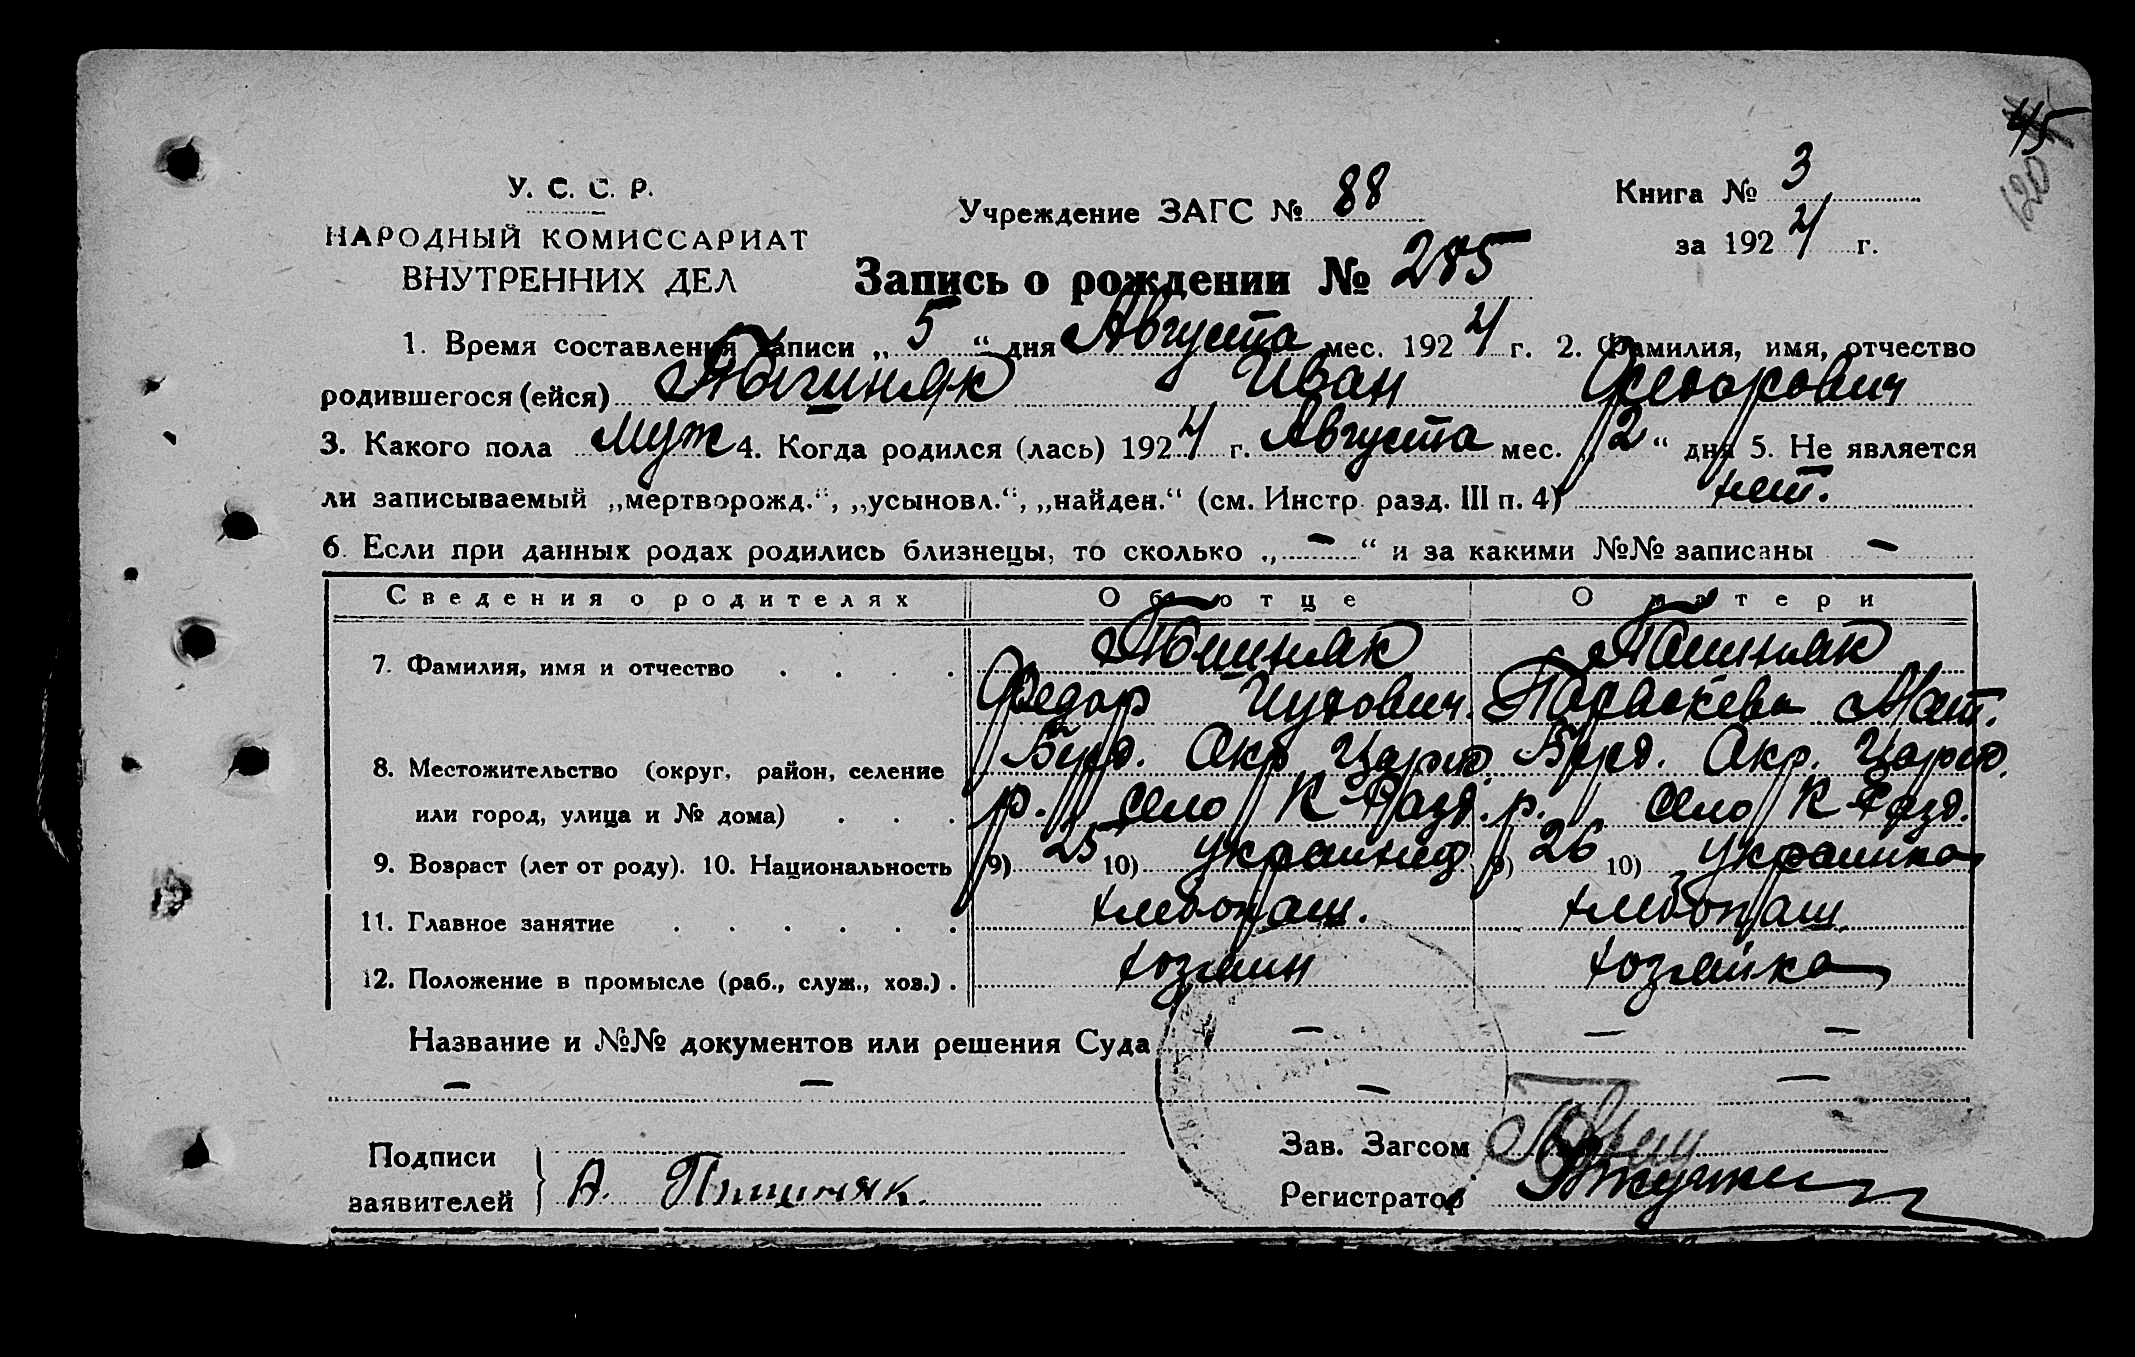 45
120
У. С. С. Р.
НАРОДНЫЙ КОМИССАРИАТ
ВНУТРЕННИХ ДЕЛ
Учреждение ЗАГС № 88
Книга № 3
за 1924 г.
Запись о рождении № 285
1. Время составления записи „ 5 “ дня Августа мес. 1924 г. 2. Фамилия, имя, отчество
родившегося (ейся) Иван Федорович
3. Какого пола муж 4. Когда родился (лась) 1924 г. Августа мес. „ 2 “ дня 5. Не является
ли записываемый „мертворожд.“, „усыновл.“, „найден.“ (см. Инстр. разд. III п. 4) нет.
6. Если при данных родах родились близнецы, то сколько „ – “ и за какими №№ записаны –
Сведения о родителях Об отце О матери
7. Фамилия, имя и отчество
Федор Параскева Мат.
8. Местожительство (округ, район, селение Берд. Окр. Царек. Берд. Окр. Царек.
или город, улица и № дома) р. село К-Разд. р. село К-Разд.
9. Возраст (лет от роду). 10. Национальность 9) 25 10) украинец 9) 26 10) украинка
11. Главное занятие хлебопаш. хлебопаш
12. Положение в промысле (раб., служ., хоз.) хозяин хозяйка
Название и №№ документов или решения Суда – – –
– – – –
Подписи
заявителей А. Пишняк.
Зав. Загсом
Регистратор